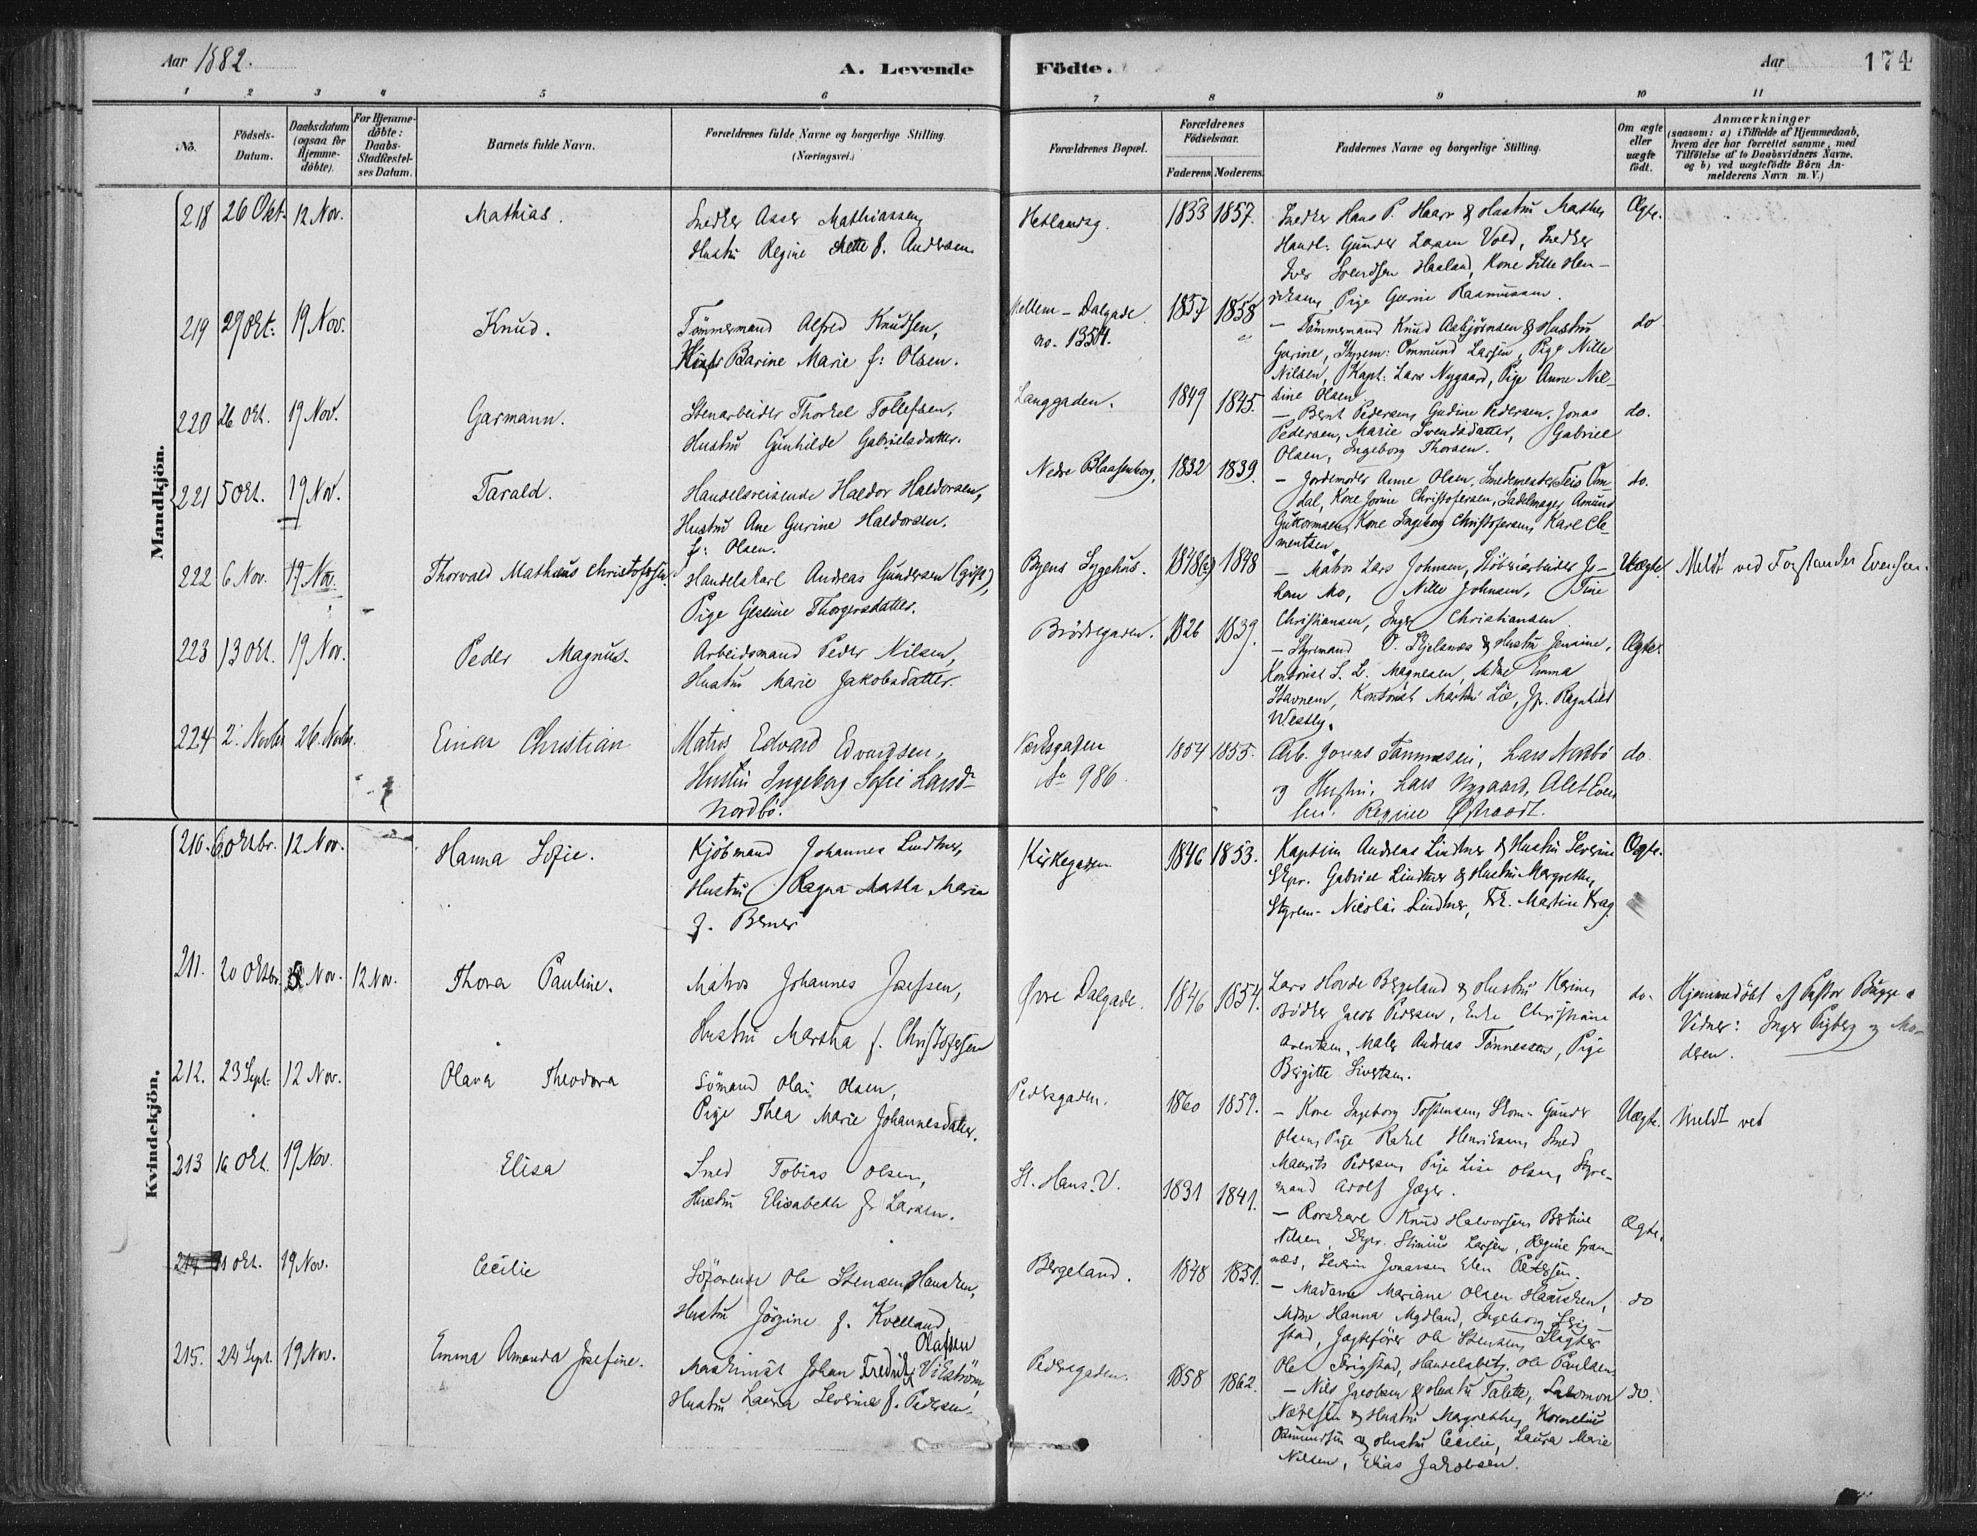 Aar 1882.
A. Levende Födte.
Aar
174
1 2 3 4 5 6 7 8 9 10 11
No.
Födsels-Datum.
Daabsdatum (ogsaa for Hjemme-döbte).
For Hjemme-döbte: Daabs-Stadfæstel-ses Datum.
Barnets fulde Navn.
Forældrenes fulde Navne og borgerlige Stilling.
(Næringsvei.)
Forældrenes Bopæl.
Forældrenes Födselsaar.
Faderens. Moderens.
Faddernes Navne og borgerlige Stilling.
Om ægte eller uægte födt.
Anmærkninger
(saasom: a) i Tilfælde af Hjemmedaab, hvem der har forrettet samme, med Tilföielse af to Daabsvidners Navne, og b) ved uægtefödte Börn An-melderens Navn m. V.)
Mandkjön.
218 26 Okt. 12 Nov. Mathias.
Snedker Asser Mathiassen,
Hustru Regine Mette f. Andersen.
Hetlandsg. 1853 1857.
Snedker Hans P. Haar & Hustru Marthe,
Handl: Gunder Larsen Vold, Snedker
Iver Svendsen Haaland, Kone Sille Hen-
riksen, Pige Gurine Rasmussen.
Ægte.
219 29 Okt. 19 Nov. Knud.
Tömmermand Alfred Knudsen,
Hustr Barine Marie f: Olsen.
Mellem-Dalgade no. 1354. 1857 1858
— Tömmermand Knud Asbjörnsen & Hustru
Gurine, Styrem: Ommund Larsen, Pige Nille
Nilsen, Kapt: Lars Nygaard, Pige Anne Nil-
sine Olsen
do
220 26 Okt. 19 Nov. Garmann.
Stenarbeider Thorkel Tollefsen,
Hustru Gunhilde Gabrielsdatter.
Langgaden. 1849 1845.
— Bernt Pedersen, Gudine Pedersen, Jonas
Pedersen, Marie Svendsdatter, Gabriel
Olsen, Ingeborg Thorsen.
do.
221 5 Okt. 19 Nov. Tarald.
Handelsreisende Haldor Haldorsen,
Hustru Ane Gurine Haldorsen.
f: Olsen.
Nedre Blaasenborg. 1832 1839.
— Jordemoder Anne Olsen, Smedemester Teis Om-
dal, Kone Jonine Christofersen, Sadelmager Amund
Guttormsen, Kone Ingeborg Christofersen, Karl Cle-
mentsen.
do.
222 6 Nov. 19 Nov. Thorvald Mathæus Christofersen.
Handelskarl Andreas Gundersen (gift),
Pige Gesine Thorgersdatter.
Byens Sygehus. 1848 1848
— Matros Lars Johnsen,
Mo, Nille Johnsen, Tine
Christiansen, Inger Christiansen.
Uægte. Meldt ved Forstander Evensen.
223 13 Okt. 19 Nov. Peder Magnus.
Arbeidsmand Peder Nilsen,
Hustru Marie Jakobsdatter.
Brödregaden. 1826 1839.
— Styremand O. Kjelsnæs & Hustru Jensine,
Kontorist S. L. Magnesen, Mdme Emma
Stavnem, Kontorist Martin Lie, Jfr. Ragnhild
Westly.
Ægte.
224 2. Novbr 26. Novbr. Einar Christian
Matros Edvard Edvardsen,
Hustru Ingeborg Sofie Larsdr
Nordbö.
Værksgaden No 986. 1854 1855.
Arb. Jonas Tannessen, Lars Nordbö
og Hustru, Lars Nygaard, Alet Even
sen. Regine Østraadt.
do.
Kvindekjön.
210. 6 Oktbr. 12 Nov. Hanna Sofie.
Kjöbmand Johannes Lindtner,
Hustru Ragna Matla Maria
f. Berner
Kirkegaden 1846 1853.
Kaptein Andreas Lindtner & Hustru Severine
Skpr. Gabriel Lindtner & Hustru Margrethe,
Styrem. Nicolai Lindtner, Frk. Martine Krag.
Ægte.
211. 20 Oktbr. 5 Nov. 12 Nov. Thora Pauline.
Matros Johannes Josefsen,
Hustru Martha f. Christofersen
Øvre Dalgade. 1846 1854.
Lars Hovde Bergeland & Hustru Karine,
Bödker Jacob Pedersen, Enke Christiane
Arentsen, Maler Andreas Tönnessen, Pige
Bergitte Sivertsen.
do. Hjemmedöbt af Pastor Bugge.
Vidner: Inger Pigberg og Mo-
deren.
212. 23 Sept. 12 Nov. Olava Theodora
Sömand Olai Olsen,
Pige Thea Marie Johannesdatter.
Pedersgaden. 1860 1859.
— Kone Ingeborg Torstensen, Skom. Gunder
Olsen, Pige Rakel Henriksen, Smed
Maurits Pedersen, Pige Lise Olsen, Styre-
mand Adolf Jæger.
Uægte. Meldt ved
213 16 Okt. 19 Nov. Elisa
Smed Tobias Olsen,
Hustru Elisabeth f. Larsen.
St. Hans. V. 1831 1841.
— Rorskarl Knud Halvorsen, Bertine
Nilsen, Skpr. Larsen, Regine Gran-
næs, Severin Jonassen, Elen Petersen.
Ægte.
214 21 Okt. 19 Nov. Cecilie
Söförende Ole Stensen Hausken,
Hustru Jörgine f. Kvelland
Bergeland. 1848 1851.
— Madame Mariane Olsen Hausken,
Mdme Hanna Mydland, Ingeborg Frig-
stad, Jagtefører Ole Stensen, Slagter
Ole Frigstad, Handelsbetj. Ole Paulsen
do
215. 24 Sept. 19 Nov. Emma Amanda Josefine.
Olafsen
Maskinist Johan Fredrik Vikström,
Hustru Laura Severine f. Pedersen.
Pedersgaden. 1858 1862.
— Nils Jacobsen & Hustru Talette, Salomon
Nælsen & Hustru Margrethe, Kornelius
Osmundsen & Hustru Cecilie, Laura Marie
Nilsen, Elias Jakobsen.
do.